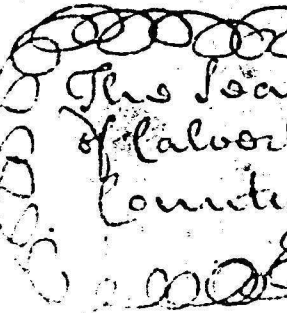 The Sea
of Calver
Counte